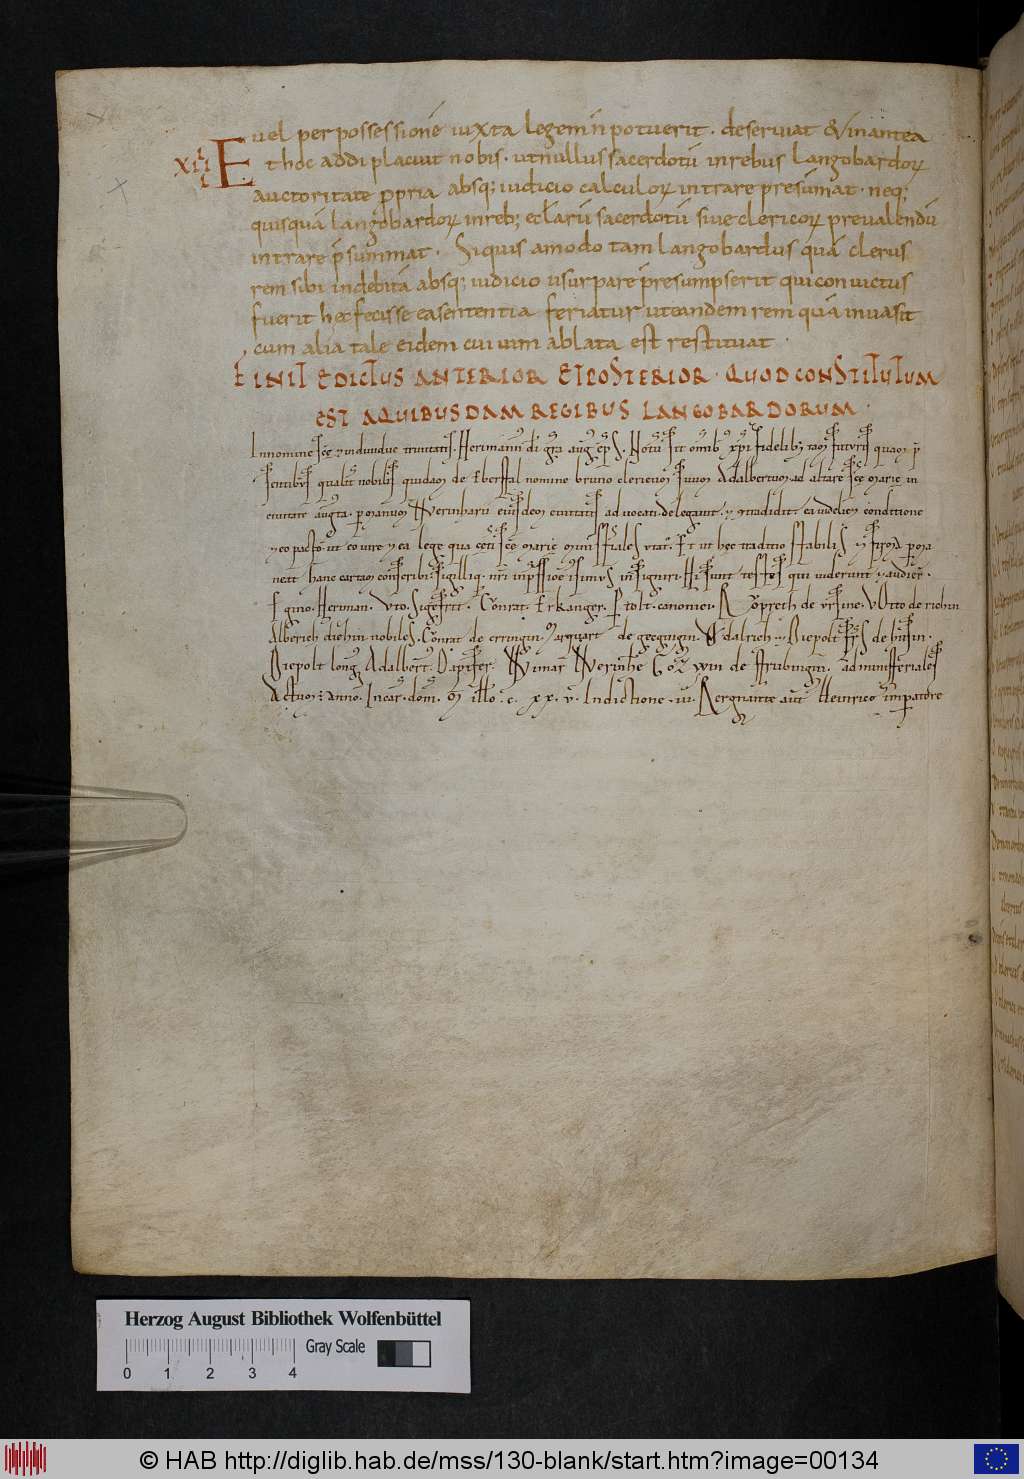 vel per possessione iuxta legem n̄ potuerit · deserviat & in antea
XIII Et hoc addi placuit nobis · ut nullus sacerdotū in rebus langobardoꝝ
auctoritate ꝓpria absq; iudicio calculoꝝ intrare presūmat · neq;
quisquā langobardoꝝ in reb; eclarū sacerdotū sive clericoꝝ prevalendū
intrare p̄summat · Siquis amodo tam langobardus quā clerus
rem sibi indebitā absq; iudicio usurpare presumpserit qui convictus
fuerit hec fecisse ea sententia feriatur ut eandem rem quā invasit
cum alia tale eidem cui vim ablata est restituat ·
FINIT EDICTUS ANTERIOR ET POSTERIOR · QUOD CONSTITUTUM
EST A QUIBUSDAM REGIBUS LANGOBARDORUM ·
In nomine sc̄e & individue trinitatis. Herimann' di gr̄a aug' ep̄s. Notū sit omīb; xp̄i fidelib; tam futuris quam p̄
sentibus qualit' nobilis quidam de nomine bruno clericum suum Adalbertum ad altare sc̄e marie in
civitate augusta · p manum Werinharii eiusdem civitatis advocati · delegavit · & tradidit ea videlicet conditione
& eo pacto · ut eo iure & ea lege qua cet'i sc̄e marie ministeriales utant'. Et ut hec traditio stabilis & p ma
neat hanc cartam conscribi · sigilliq; nr̄i inp̄ssione insigniri. Hi sunt testes qui viderunt & audier̄.
Egino. Herman. Uto. Sigefrit. Cōnrat. Erkanger. canonici. R de ursine. Otto de
Alberich nobiles. Cōnrat de erringin. Marquart de gecgingin. Ŏdalrich & Diepolt frs̄ de
Diepolt long' Adalbert' Dapifer. Wimar Werinhe Go win de ministeriales
Actum anno. Incar. dom. Millo. c. xx. v. Indictione .iii. Regnante aut Heinrico imperatore
Herzog August Bibliothek Wolfenbüttel
Gray Scale
0 1 2 3 4
© HAB http://diglib.hab.de/mss/130-blank/start.htm?image=00134